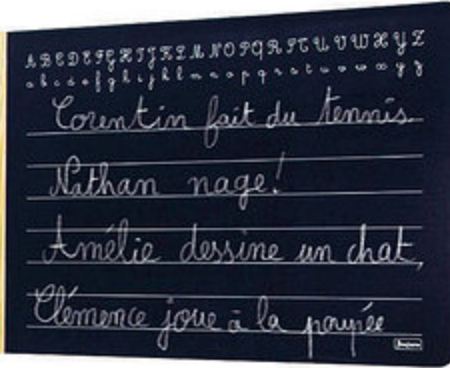 A B C D E F G H I J K L M N O P Q R S T U V W X Y Z
a b c d e f g h i j k l m n o p q r s t u v w x y z
Corentin fait du tennis.
Nathan nage!
Amélie dessine un chat,
Clémence joue à la poupée